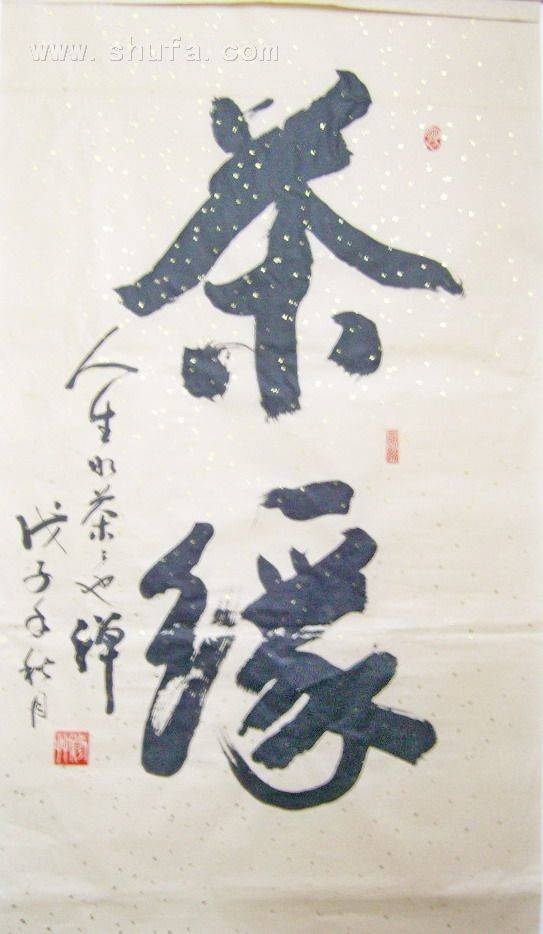 www.shufa.com
茶缘
人生如茶々也禅
戊子年秋月